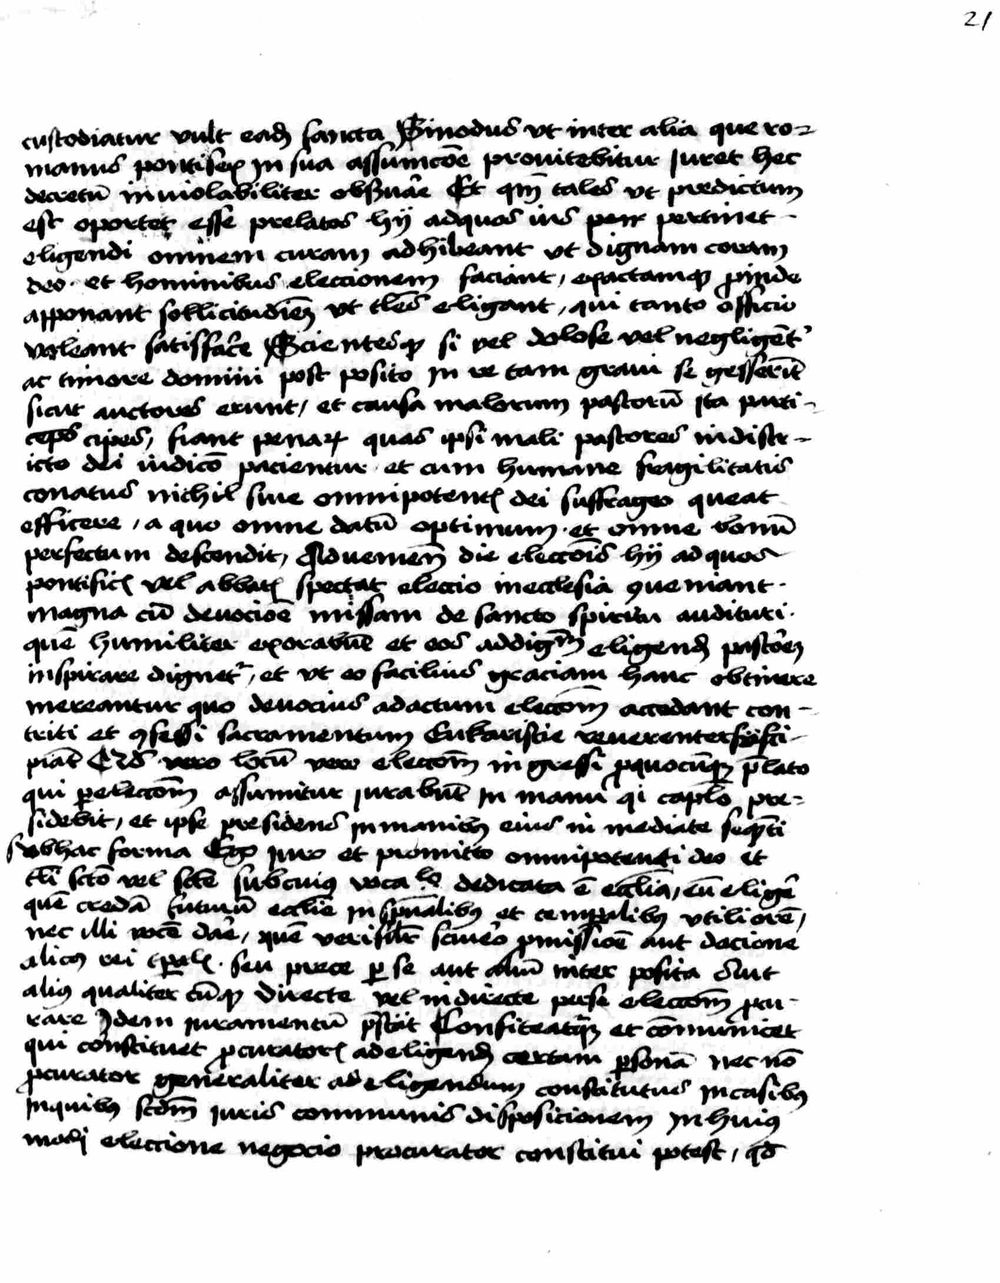 21
custodiatur vult eadē sancta Sinodus vt inter alia que ro-
manus pontifex In sua assumcōe profitebitur Juret hec
decretū inuiolabiliter obseruare Et qm̄ tales vt predictum
est oportet esse prelatos hij adquos ius pertinet
eligendi omnem curam adhibeant vt dignam coram
deo et hominibus eleccionem faciant, exactamqꝫ proinde
apponant sollicitudiēm vt tles eligant, qui tanto officio
valeant satisfacere Scientesqꝫ si vel dolose vel negligent'
ac timore domini post posito In re tam graui se gesserīt
sicut auctores erunt, et causa malorum pastorū Ita parti-
ceps cipes, fiant penaꝝ quas ipsi mali pastores indistr-
icto dei iudicō pacientur et cum humane fragilitatis
conatus nichil sine omnipotentꝭ dei suffragio queat
efficere, a quo omne datū optimum et omne donū
perfectum descendit, Adueniēn die elecciōis hij ad quos
pontificꝭ vel abbatꝭ spectat eleccio inecclesia ꝯueniant
magna cū deuociōe missam de sancto spiritu audituri
quē humiliter exorabūt et eos addignū eligendū pastorem
inspirare dignet', et vt eo facilius graciam hanc obtinere
mereantur quo deuocius adactum eleccōm accedant con-
triti et ꝯfessi sacramentum Eukaristie reuerenter susci-
piāt locū vero eleccōm ingressi ꝓquocūqꝫ p̄lato
qui ꝑeleccōm assumitur jurabūt In manu qi caplo pre-
sidebit, et ipse presidens Inmanibꝫ eius in mediate seqn̄ti
subhac forma Ego juro et promitto omnipotenti deo et
tli scto vel scte subcuiꝯ vocablo dedicata ē ecclīa, eū eligē
quē credā futurū ecclie Inspūalibꝫ et temporalibꝫ vtiliorē,
nec illi vocē dare, quē verisilr sciuero ꝓmissiōe aut dacione
alicꝯ rei tꝑalꝭ seu prece ꝑ se aut aliū inter posita aut
aliꝯ qualiter cūqꝫ directe vel indirecte perse eleccōm ꝓcu-
rare Idem iuramentū p̄stat Confiteaturqꝫ et cōmunicet
qui constituet ꝓcuratorꝭ adeligendū certam ꝑsonā nec nō
ꝓcurator generaliter ad eligendum constitutus Incasibꝫ
Inquibꝫ scdm̄ juris communis disposicionem Inhuiꝯ
modi eleccione negocio procurator constitui potest, qd